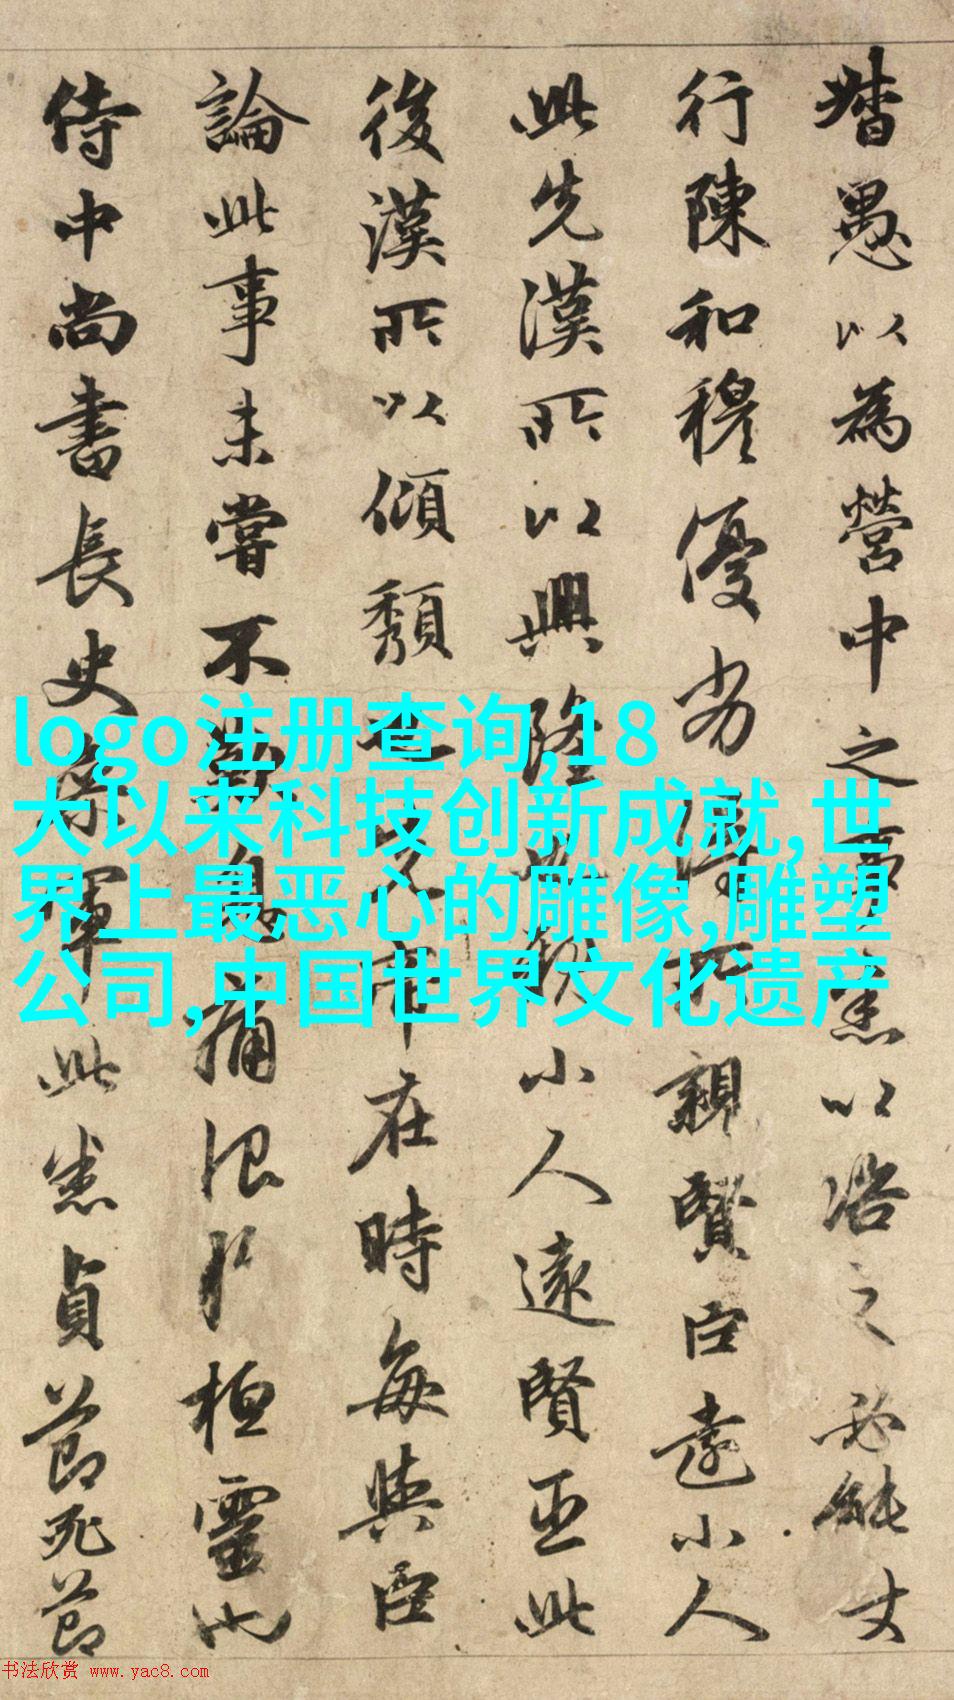 督愚以為營中之事悉以咨之必能
行陳和穆優劣得所親賢臣遠小人
此先漢所以興隆也親小人遠賢臣此
後漢所以傾頹也先帝在時每與臣
論此事未嘗不歎息痛恨於桓靈也
侍中尚書長史參軍此悉貞節死節
logo注册查询,18
大以来科技创新成就,世
界上最恶心的雕像,雕塑
公司,中国世界文化遗产
书法欣赏 www.yac8.com